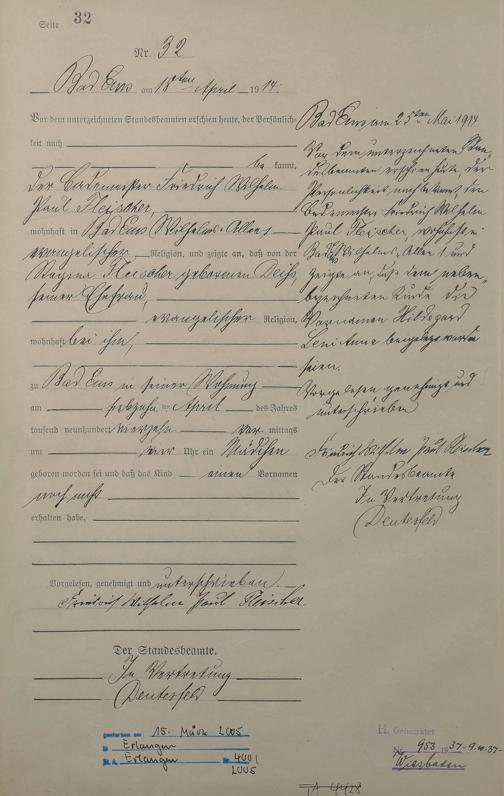 Seite 32
Nr. 32
Bad Ems am 18ten April 1914.
Vor dem unterzeichneten Standesbeamten erschien heute, der Persönlich-
keit nach
be kannt,
der Bademeister Friedrich Wilhelm
Paul Fleischer,
wohnhaft in Bad Ems Wilhelms-Allee 1
evangelischer Religion, und zeigte an, daß von der
Regina Fleischer geborenen
seiner Ehefrau,
evangelischer Religion,
wohnhaft bei ihm,
zu Bad Ems in seiner Wohnung
am ten April des Jahres
tausend neunhundert vierzehn vor mittags
um Uhr ein Mädchen
geboren worden sei und daß das Kind einen Vornamen
noch nicht
erhalten habe.
Vorgelesen, genehmigt und unterschrieben
Friedrich Wilhelm Paul Fleischer.
Der Standesbeamte.
In Vertretung
Deutesfeld
Bad Ems am 25ten Mai 1914
Vor dem unterzeichneten Stan-
desbeamten erschien heute, der
Persönlichkeit nach bekannt, der
Bademeister Friedrich Wilhelm
Paul Fleischer, wohnhaft in
Bad Ems Wilhelms-Allee 1 und
zeigte an, daß dem neben-
bezeichneten Kinde die
Vornamen Hildegard
Leni Anna beigelegt worden
seien.
Vorgelesen genehmigt und
unterschrieben
Friedrich Wilhelm Paul Fleischer
Der Standesbeamte
In Vertretung
Deutesfeld
gestorben am: 15. März 2005
in Erlangen
St. A. Erlangen Nr. 400/
2005
H. Geheiratet
Nr. 953 1937 - 9.10.37 -
Wiesbaden
TA 4428